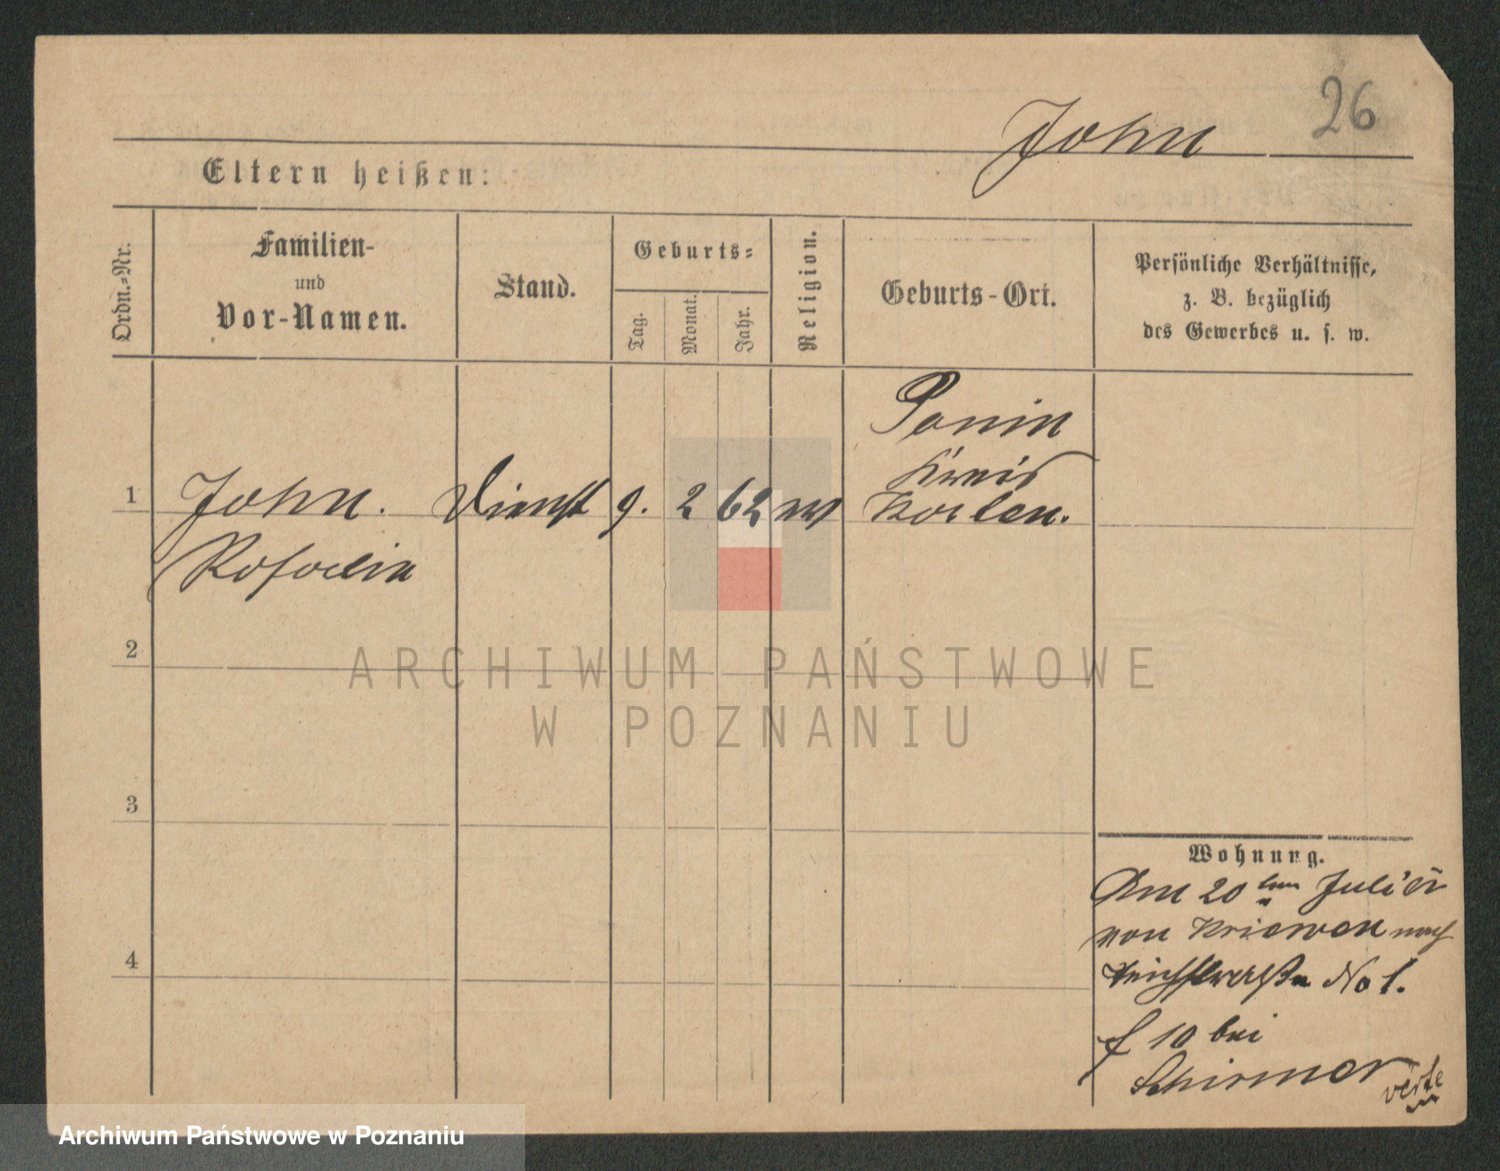 26
John
Eltern heißen:
Ordn.-Nr.
Familien-
und
Vor-Namen.
Stand.
Geburts-
Tag.
Monat.
Jahr.
Religion.
Geburts-Ort.
Persönliche Verhältnisse,
z. B. bezüglich
des Gewerbes u. s. w.
Ponin
Kreis
1 John. Dienst 9. 2 62 Kosten.
2
ARCHIWUM PAŃSTWOWE
W POZNANIU
3
Wohnung.
Am 20 ten Juli
von Kriewen nach
4
No 1.
f 10 bei
Schirmer
Archiwum Państwowe w Poznaniu